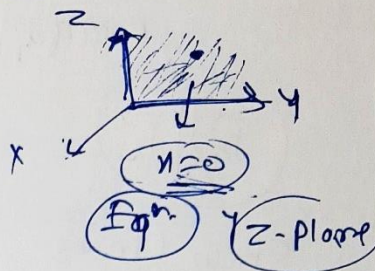 Z
Y
X
x=0
Eqn.
YZ-plane